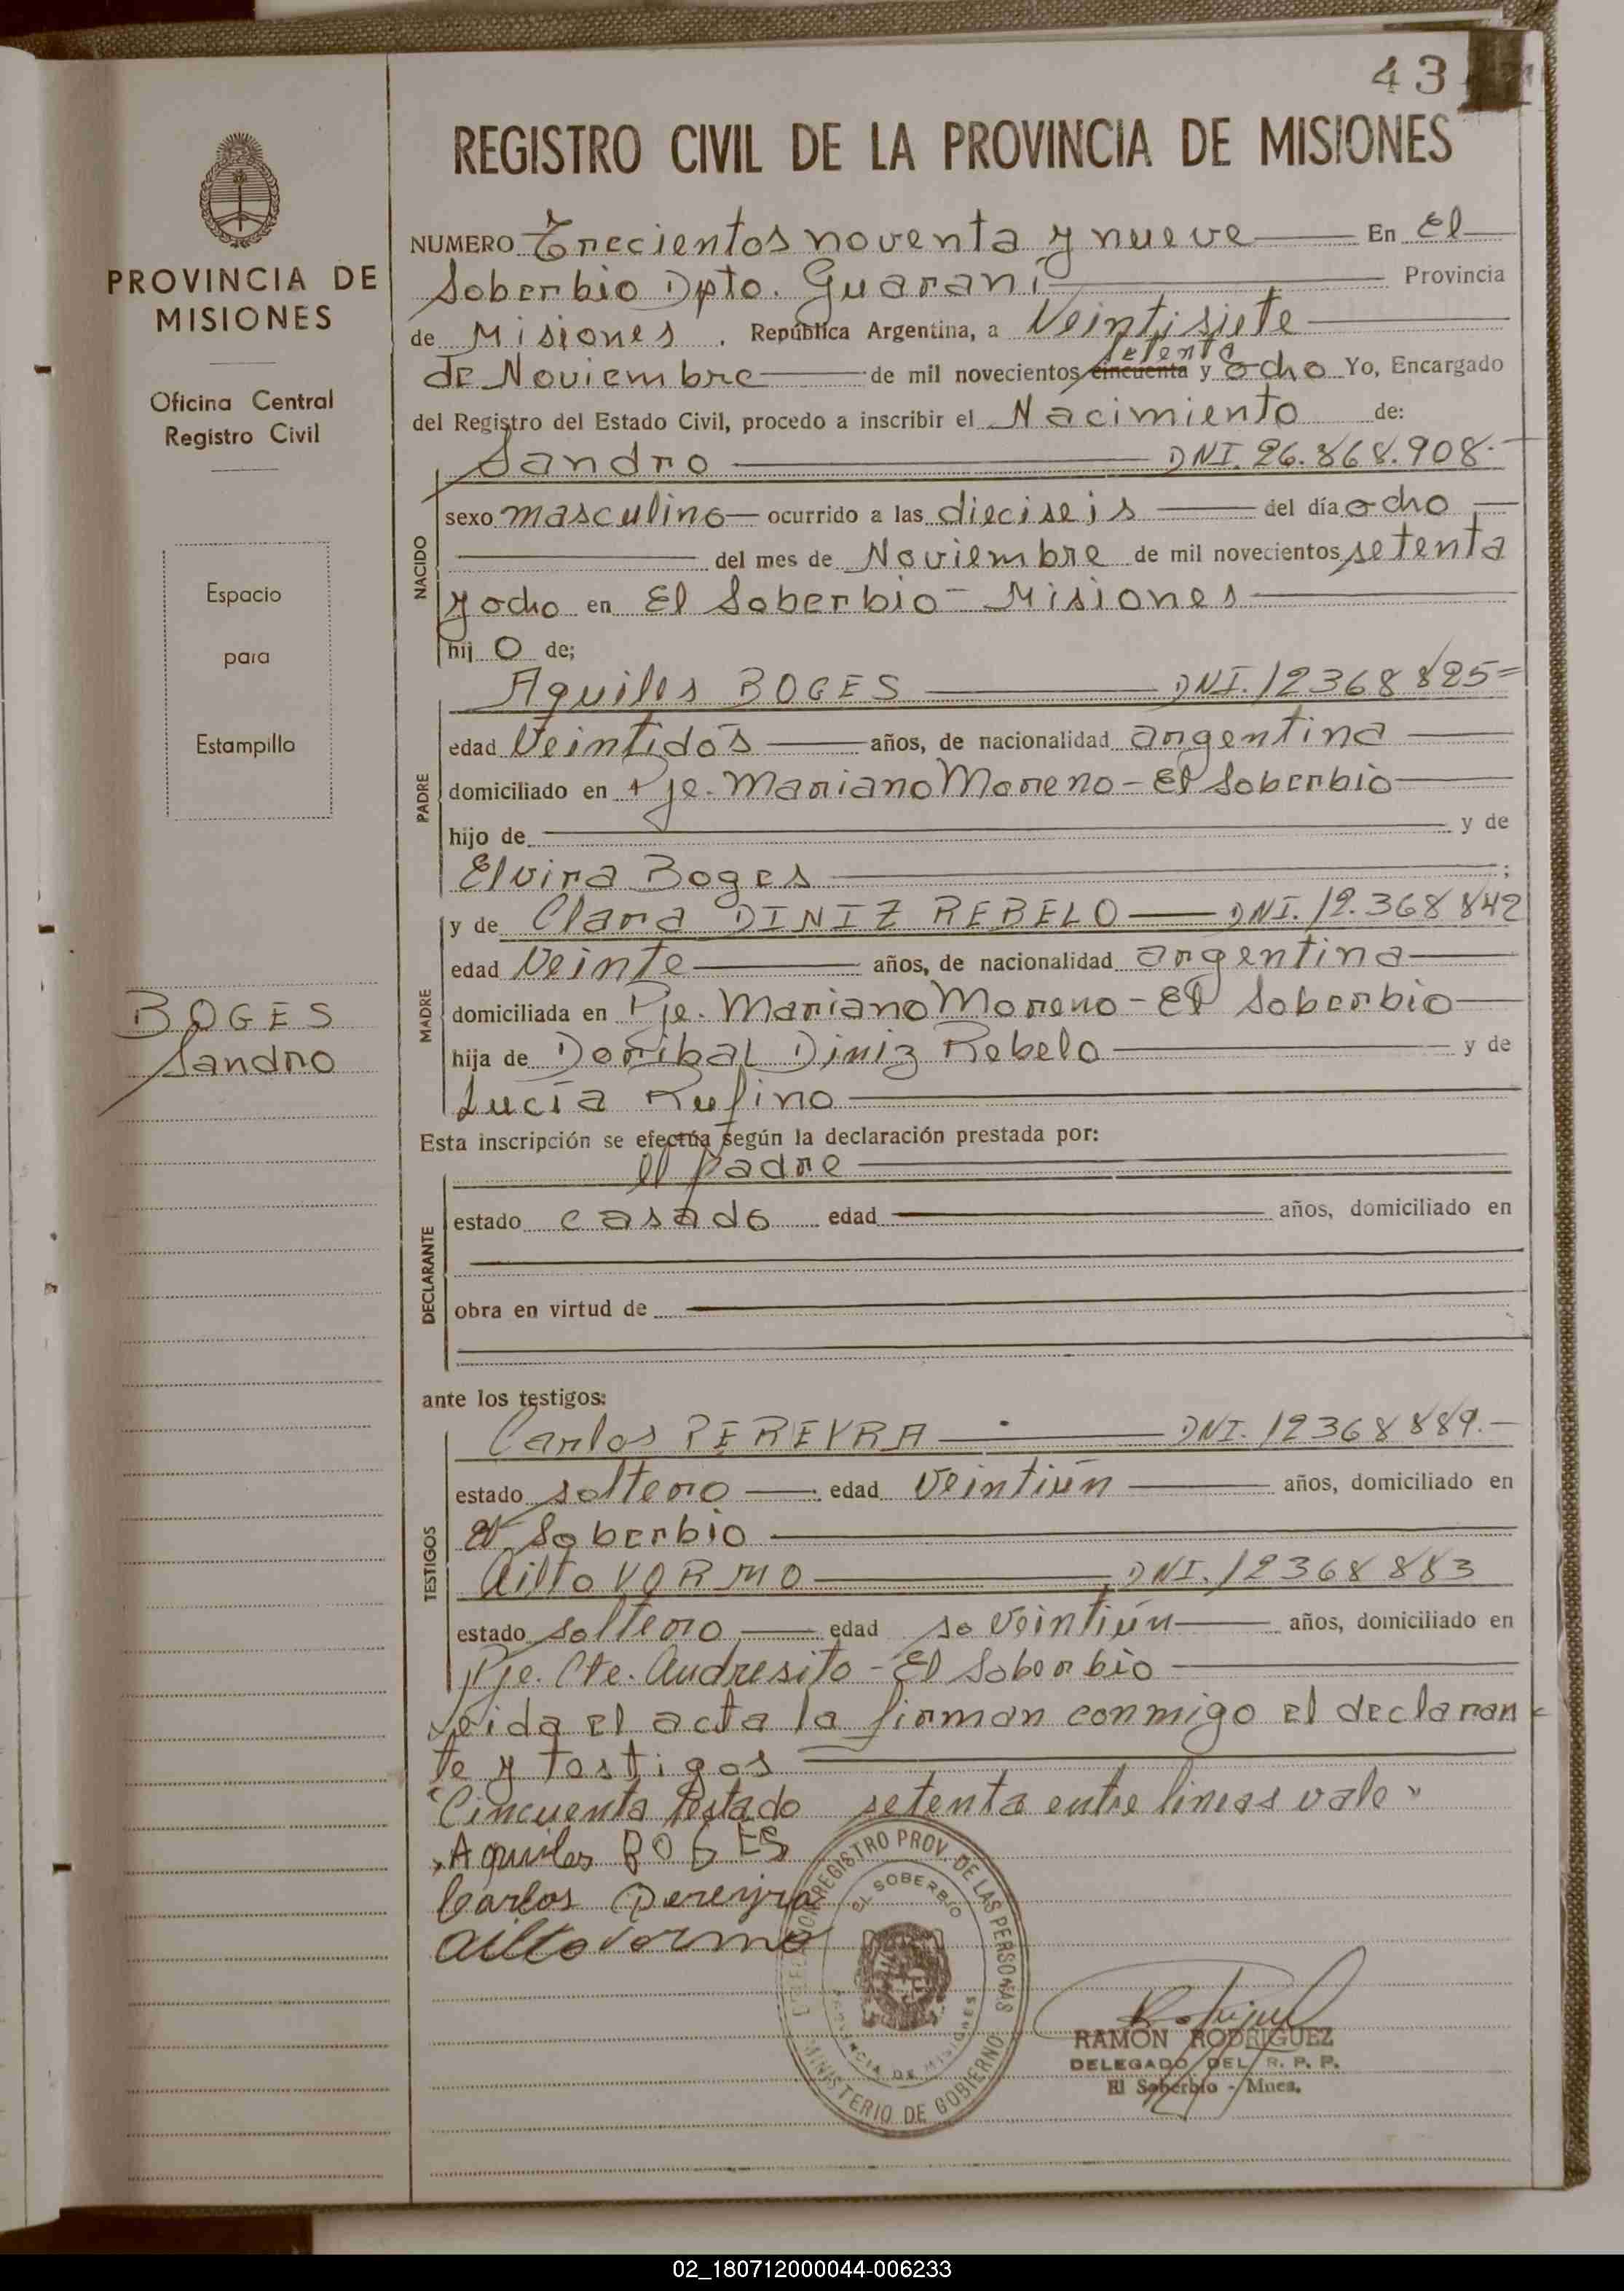 43
REGISTRO CIVIL DE LA PROVINCIA DE MISIONES
PROVINCIA DE
MISIONES
Oficina Central
Registro Civil
Espacio
para
Estampillo
BOGES
Sandro
NUMERO Trecientos noventa y nueve En El
Soberbio Dpto. Guaraní Provincia
de Misiones . República Argentina, a Veintisiete
setenta
de Noviembre de mil novecientos cincuenta y ocho Yo, Encargado
del Registro del Estado Civil, procedo a inscribir el Nacimiento de:
NACIDO
Sandro DNI. 26.868.908.-
sexo masculino ocurrido a las dieciseis del día ocho
del mes de Noviembre de mil novecientos setenta
y ocho en El Soberbio - Misiones
hij o de;
PADRE
Aquiles BOGES DNI. 12368825=
edad Veintidós años, de nacionalidad argentina
domiciliado en Pje. Mariano Moreno - El Soberbio
hijo de y de
Elvira Boges ;
MADRE
y de Clara DINIZ REBELO DNI. 12.368842
edad Veinte años, de nacionalidad argentina
domiciliada en Pje. Mariano Moreno - El Soberbio
hija de Doribal Diniz Rebelo y de
Lucía Rufino
Esta inscripción se efectúa según la declaración prestada por:
DECLARANTE
el padre
estado casado edad años, domiciliado en
obra en virtud de
ante los testigos:
TESTIGOS
Carlos PEREYRA DNI. 12368889.-
estado soltero edad Veintiún años, domiciliado en
El Soberbio
Ailto VORMO DNI. 12368883
estado soltero edad so Veintiún años, domiciliado en
Pje. Cte. Andresito - El Soberbio
Leida el acta la firman conmigo el declaran=
te y testigos
"Cincuenta testado setenta entre lineas vale"
Aquiles BOGES
Carlos Pereyra
Ailto Vormo
REGISTRO PROV. DE LAS PERSONAS
EL SOBERBIO
PROVINCIA DE MISIONES
MINISTERIO DE GOBIERNO
RAMON RODRIGUEZ
DELEGADO DEL R. P. P.
El Soberbio - Mnes.
02_180712000044-006233